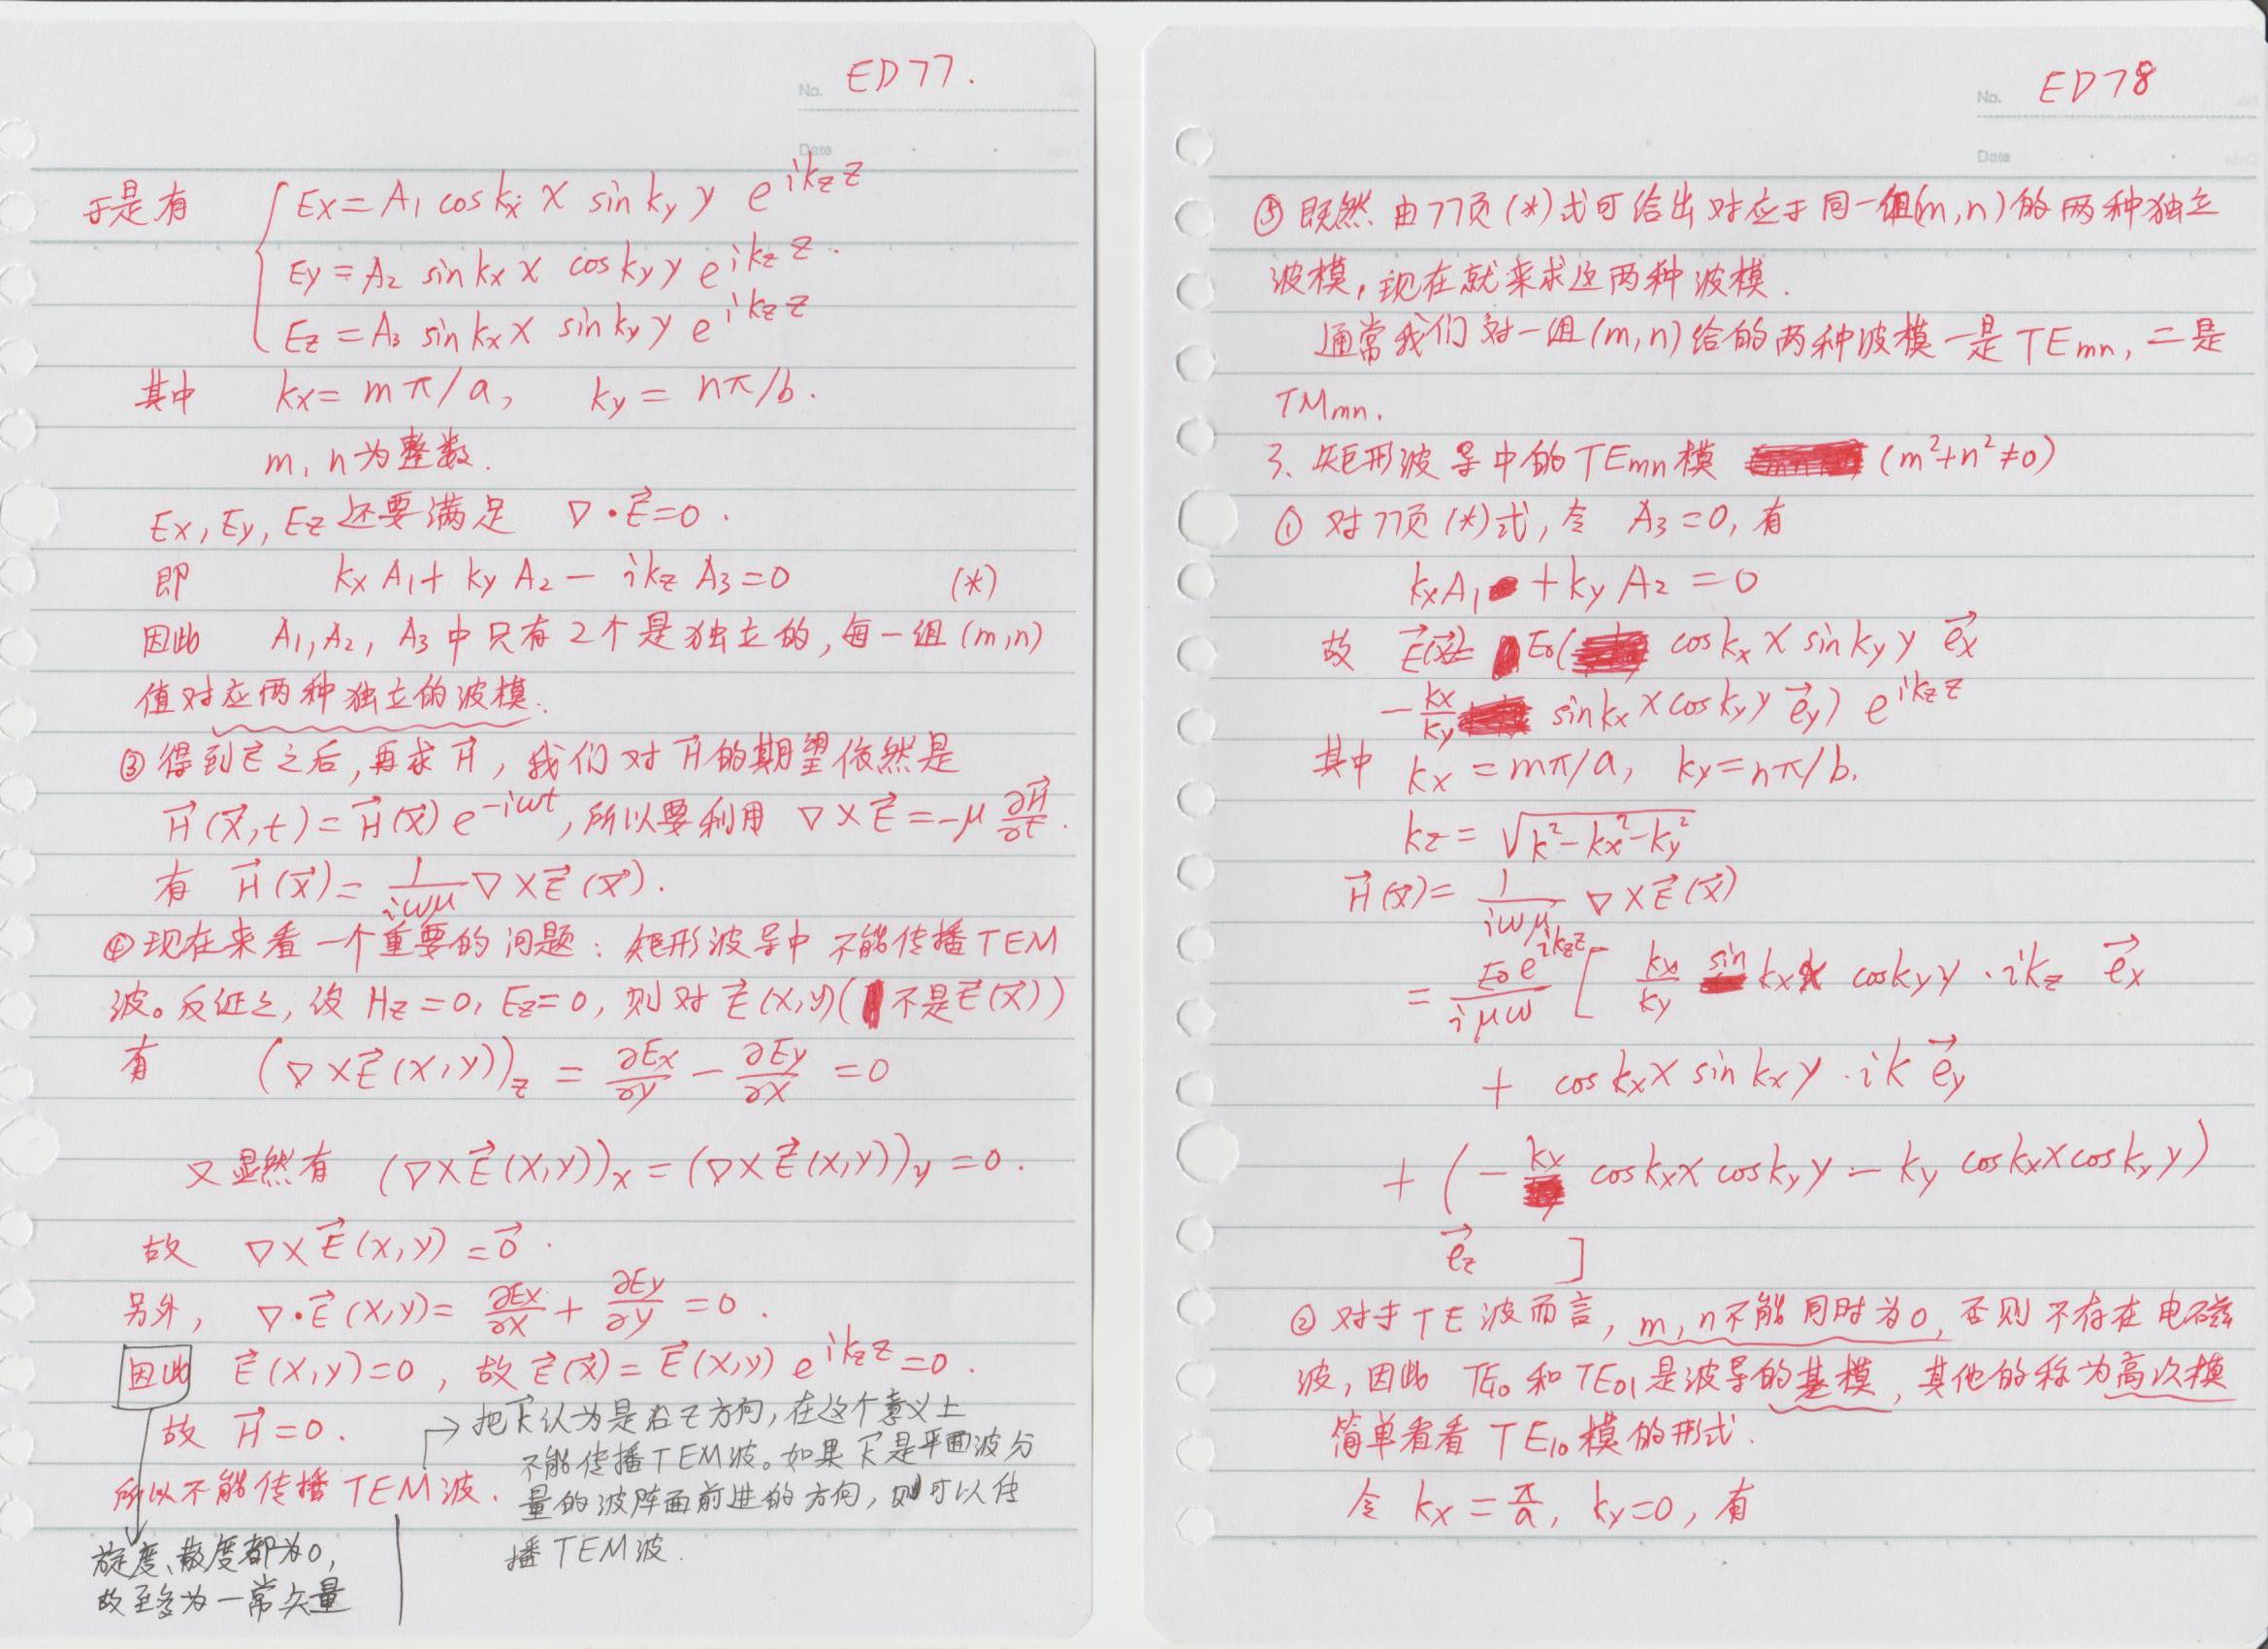 No. ED77.
Date
于是有 { Ex = A₁ cos kₓ x sin k_y y e^{ik_z z}
Ey = A₂ sin kₓ x cos k_y y e^{ik_z z}.
Ez = A₃ sin kₓ x sin k_y y e^{ik_z z}
其中 kₓ = mπ/a, k_y = nπ/b.
m, n为整数.
Ex, Ey, Ez 还要满足 ∇·E⃗=0.
即 kₓA₁ + k_y A₂ − ik_z A₃ = 0 (*)
因此 A₁, A₂, A₃中只有2个是独立的, 每一组(m,n)
值对应两种独立的波模.
③ 得到E⃗之后, 再求H⃗, 我们对H⃗的期望依然是
H⃗(x⃗,t) = H⃗(x⃗) e^{-iωt}, 所以要利用 ∇×E⃗ = −μ ∂H⃗/∂t.
有 H⃗(x⃗) = 1/(iωμ) ∇×E⃗(x⃗).
④ 现在来看一个重要的问题: 矩形波导中不能传播TEM
波。反证之, 设 Hz=0, Ez=0, 则对 E⃗(x,y) (不是E⃗(x⃗))
有 (∇×E⃗(x,y))_z = ∂Ex/∂y − ∂Ey/∂x = 0
又显然有 (∇×E⃗(x,y))_x = (∇×E⃗(x,y))_y = 0.
故 ∇×E⃗(x,y) = 0⃗.
另外, ∇·E⃗(x,y) = ∂Ex/∂x + ∂Ey/∂y = 0.
因此 E⃗(x,y)=0, 故E⃗(x⃗) = E⃗(x,y) e^{ik_z z} = 0.
故 H⃗=0.
所以不能传播TEM波.
→ 把k⃗认为是沿z方向, 在这个意义上
不能传播TEM波。如果k⃗是平面波分
量的波阵面前进的方向, 则可以传
播TEM波.
旋度、散度都为0,
故至多为一常矢量
No. ED78
Date
⑤ 既然由77页(*)式可给出对应于同一组(m,n)的两种独立
波模, 现在就来求这两种波模.
通常我们对一组(m,n)给的两种波模一是TEmn, 二是
TMmn.
3. 矩形波导中的TEmn模 (m²+n²≠0)
① 对77页(*)式, 令 A₃=0, 有
kₓA₁ + k_y A₂ = 0
故 E⃗(x⃗) = E₀( cos kₓ x sin k_y y e⃗ₓ
− kₓ/k_y sin kₓ x cos k_y y e⃗_y) e^{ik_z z}
其中 kₓ = mπ/a, k_y = nπ/b.
k_z = √(k²−kₓ²−k_y²)
H⃗(x⃗) = 1/(iωμ) ∇×E⃗(x⃗)
= E₀ e^{ik_z z}/(iμω) [ kₓ/k_y sin kₓ x cos k_y y · ik_z e⃗ₓ
+ cos kₓ x sin kₓ y · ik e⃗_y
+ (− kₓ cos kₓ x cos k_y y − k_y cos kₓ x cos k_y y)
e⃗_z ]
② 对于TE波而言, m, n不能同时为0, 否则不存在电磁
波, 因此 TE₁₀和TE₀₁是波导的基模, 其他的称为高次模
简单看看TE₁₀模的形式.
令 kₓ = π/a, k_y=0, 有